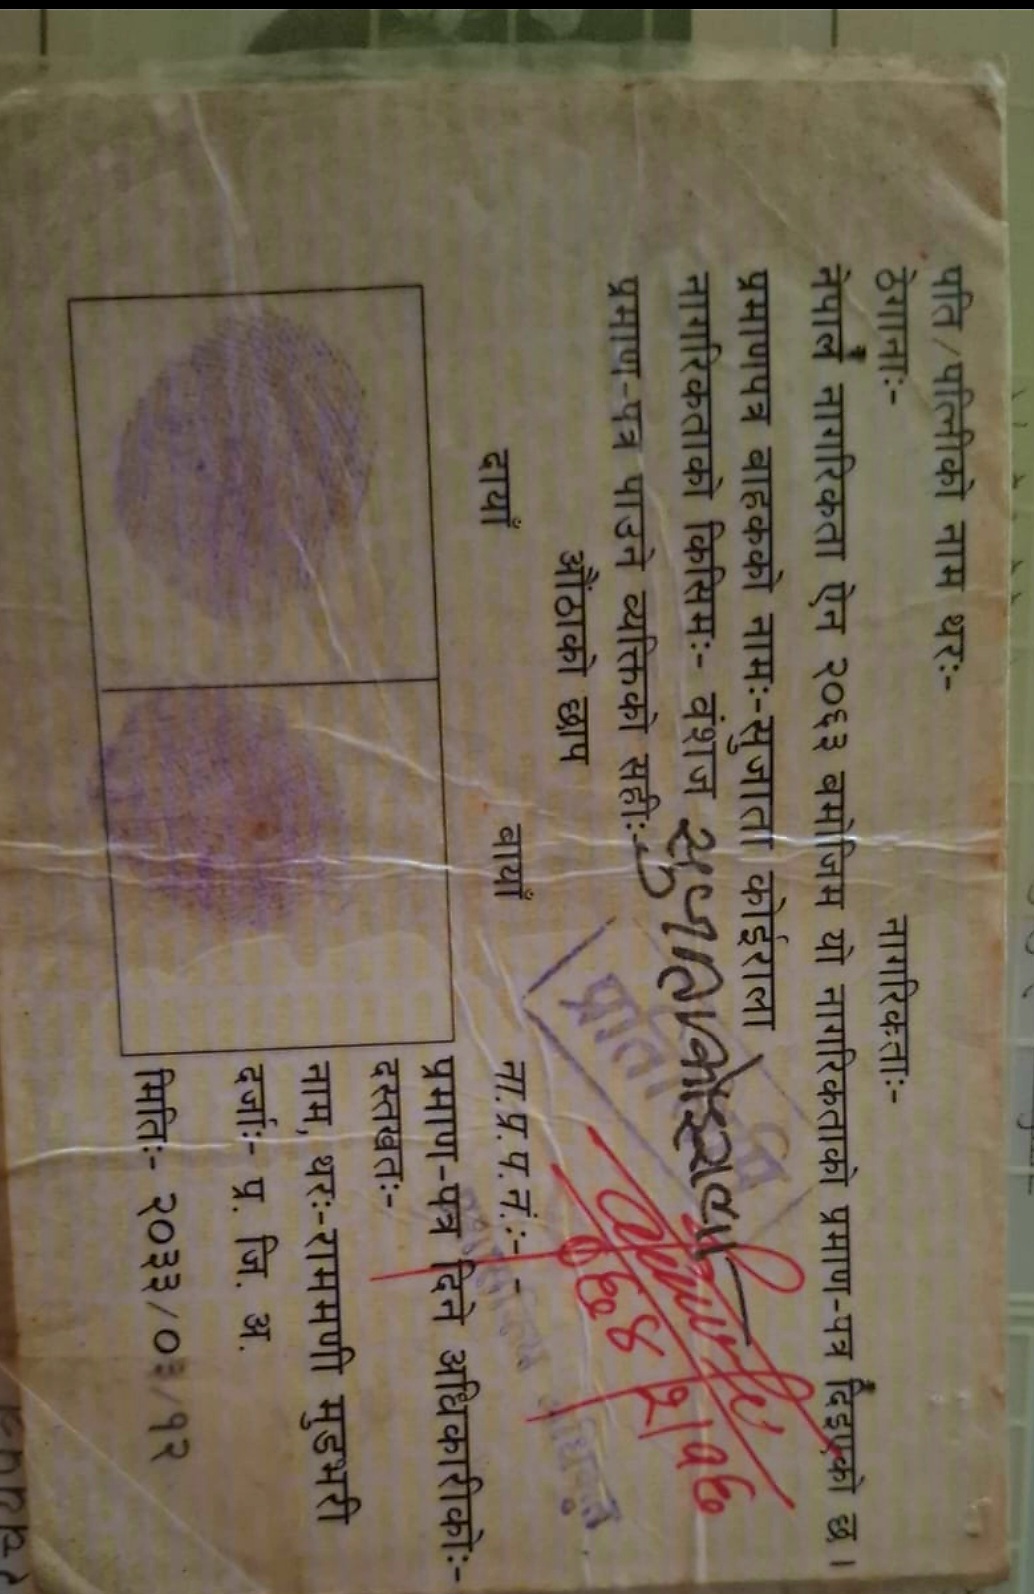 पति/पत्निको नाम थरः-
ठेगानाः- नागरिकताः-
नेपाल नागरिकता ऐन २०६३ बमोजिम यो नागरिकताको प्रमाण-पत्र दिइएको छ।
प्रमाणपत्र वाहकको नामः-सुजाता कोइराला
नागरिकताको किसिमः- वंशज
प्रमाण-पत्र पाउने व्यक्तिको सहीः- सुजाता कोइराला
औंठाको छाप
दायाँ बायाँ
ना.प्र.प.नं.:-
प्रमाण-पत्र दिने अधिकारीकोः-
दस्तखतः-
नाम, थरः-राममणी मुडभरी
दर्जाः- प्र. जि. अ.
मितिः- २०३३/०३/१२